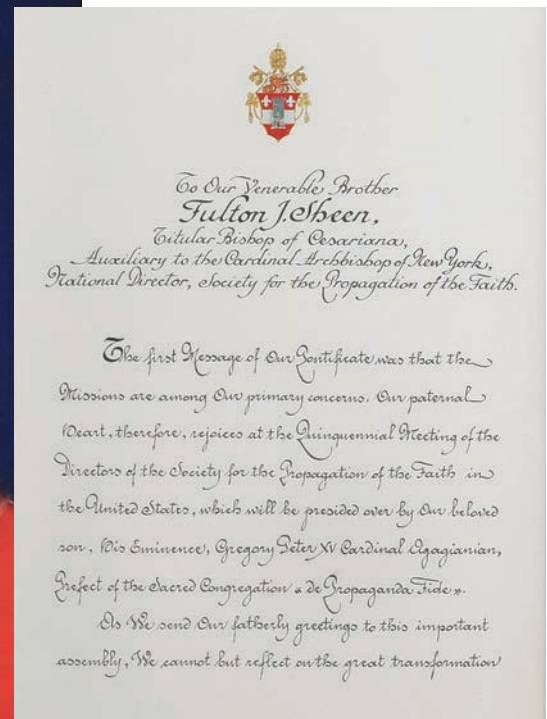 To Our Venerable Brother
Fulton J. Sheen,
Titular Bishop of Cesariana,
Auxiliary to the Cardinal Archbishop of New York,
National Director, Society for the Propagation of the Faith.
The first Message of Our Pontificate was that the
Missions are among Our primary concerns. Our paternal
Heart, therefore, rejoices at the Quinquennial Meeting of the
Directors of the Society for the Propagation of the Faith in
the United States, which will be presided over by Our beloved
son, His Eminence, Gregory Peter XV Cardinal Agagianian,
Prefect of the Sacred Congregation « de Propaganda Fide ».
As We send Our fatherly greetings to this important
assembly, We cannot but reflect on the great transformation